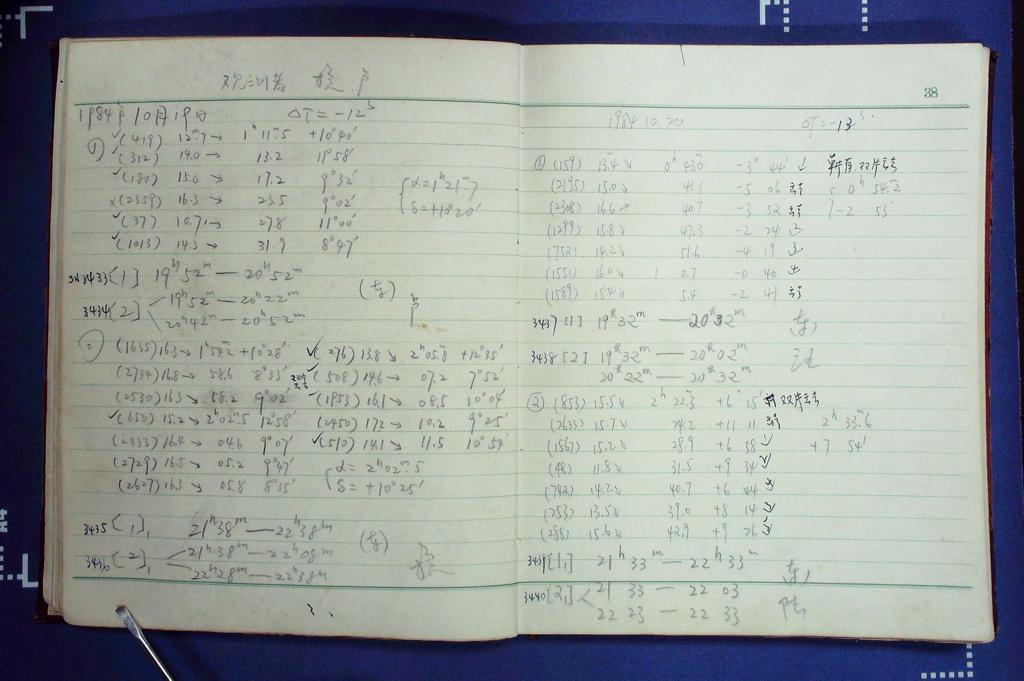 观测者
1984年10月19日 ΔT=-12ˢ
① ✓(419) 12ᵐ.7→ 1ʰ11ᵐ.5 +10°40′
✓(312) 14.0→ 13.2 11°58′
✓(180) 15.0→ 17.2 9°32′
×(2359) 16.3→ 23.5 9°02′
✓(37) 10.7→ 27.8 11°00′
✓(1013) 14.3→ 31.9 8°47′
{α=1ʰ21ᵐ.7
δ=+10°20′
3433[1] 19ʰ52ᵐ—20ʰ52ᵐ
3434[2] 19ʰ52ᵐ—20ʰ22ᵐ
20ʰ42ᵐ—20ʰ52ᵐ
② (1635) 16.3→ 1ʰ54ᵐ.2 +10°28′ ✓(276) 13.8↘ 2ʰ05ᵐ.8 +12°35′
(2734) 16.8→ 58.6 8°33′ ✓(508) 14.6→ 07.2 7°52′
(2530) 16.3↘ 58.2 9°02′ ✓(1953) 16.1→ 08.5 10°04′
✓(650) 15.2→ 2ʰ02ᵐ.5 12°58′ (2450) 17.2→ 10.2 9°25′
(2333) 16.4→ 04.6 9°07′ ✓(510) 14.1→ 11.5 10°54′
(2729) 16.5↘ 05.2 9°47′ {α=2ʰ02ᵐ.5
(2627) 16.3↘ 05.8 8°35′ δ=+10°25′
3435[1] 21ʰ38ᵐ—22ʰ38ᵐ
3436[2] 21ʰ38ᵐ—22ʰ08ᵐ
22ʰ28ᵐ—22ʰ38ᵐ
38
1984.10.20 ΔT=-13ˢ
① (159) 13.4↘ 0ʰ43.0ᵐ -3° 44′
(2195) 15.0↘ 41.1 -5 06 { 0ʰ 54ᵐ.2
(2308) 16.6→ 40.7 -3 52 -2 53′
(1299) 15.8↘ 47.3 -2 24
(752) 14.2↘ 51.6 -4 19
(1551) 16.0↘ 1 0.7 -0 40
(1589) 15.4↘ 5.4 -2 41
3437[1] 19ʰ32ᵐ—20ʰ32ᵐ
3438[2] 19ʰ32ᵐ—20ʰ02ᵐ
20ʰ22ᵐ—20ʰ32ᵐ
② (853) 15.5↘ 2ʰ 22.3ᵐ +6° 15′
(2633) 15.7↘ 24.2 +11 11 2ʰ 33ᵐ.6
(1567) 15.2↘ 28.9 +6 58 +7 54′
(48) 11.8↘ 31.5 +9 34
(742) 14.2↘ 40.7 +6 44
(253) 13.5↘ 39.0 +8 14
(288) 15.6↘ 42.9 +9 26
3439[1] 21ʰ 33ᵐ—22ʰ 33ᵐ
3440[2] 21 33—22 03
22 23—22 33